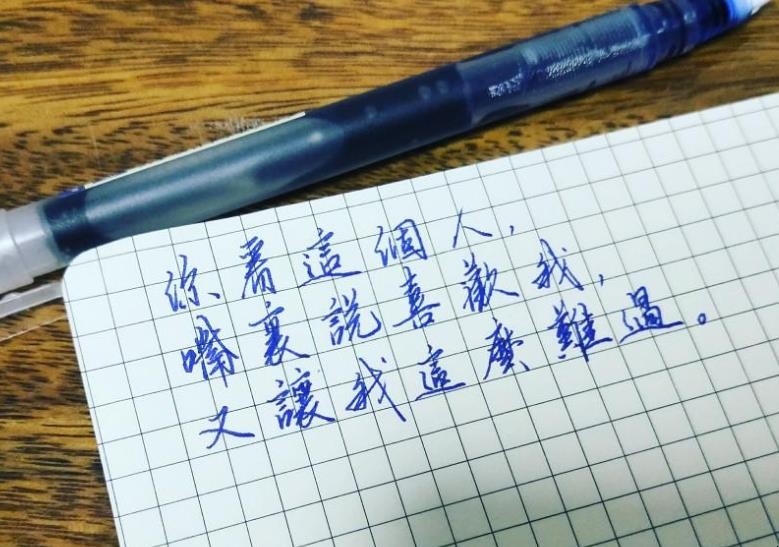 你看這個人，
嘴裏說喜歡我，
又讓我這麼難過。